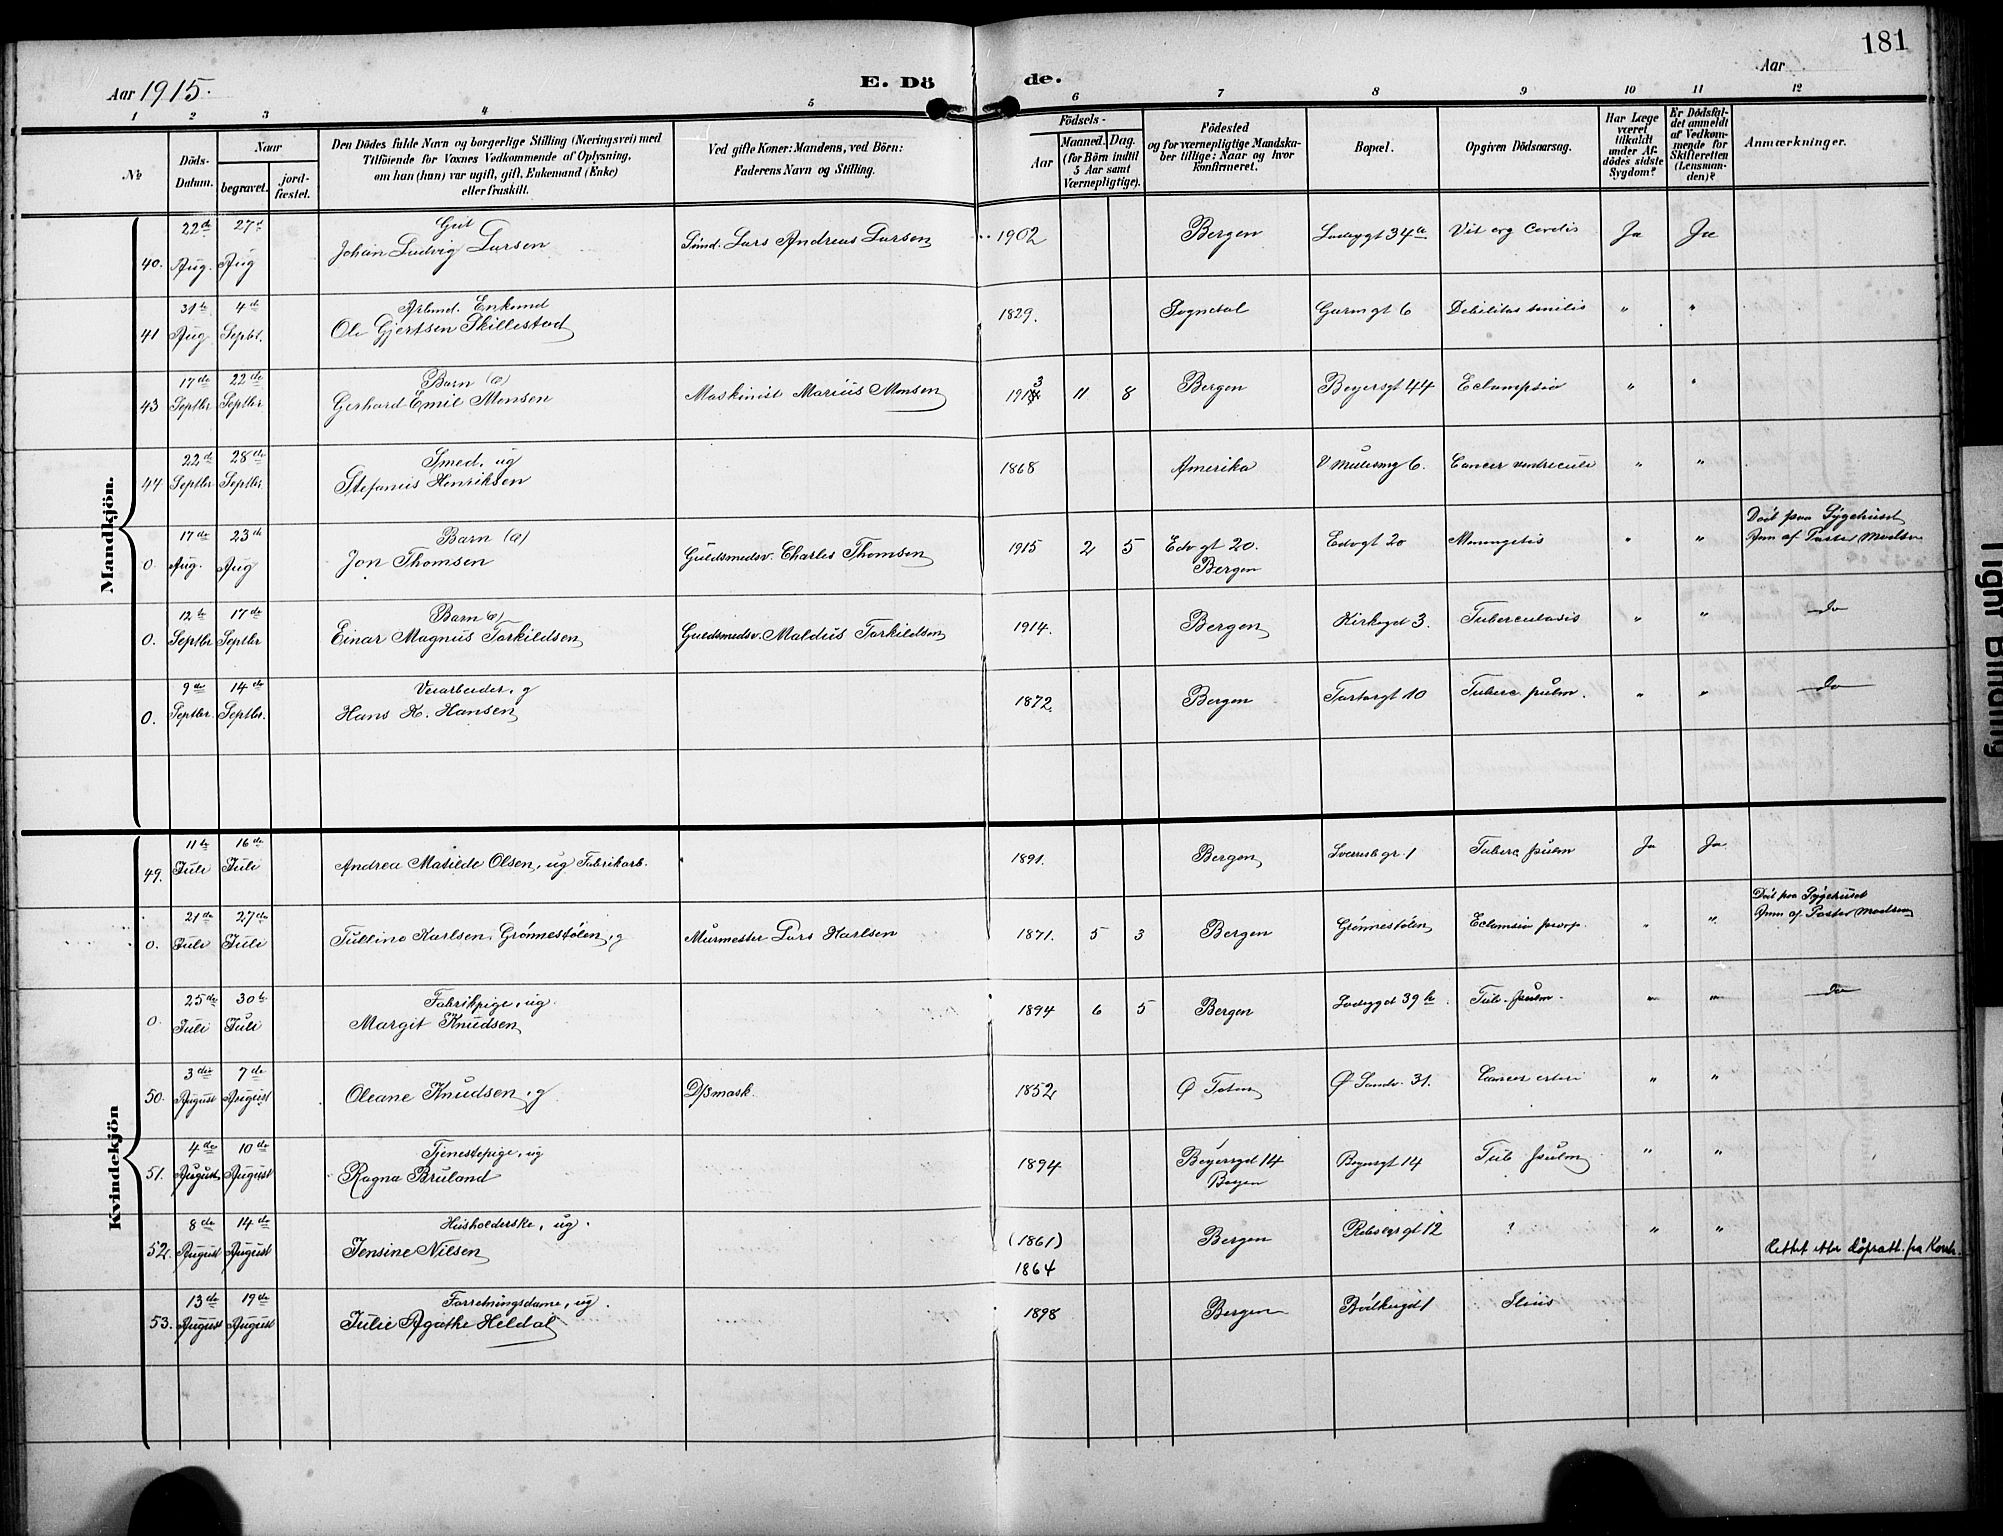 181
Aar 1915.
E. Dö de.
Aar
1 2 3 4 5 6 7 8 9 10 11 12
№
Döds-Datum.
Naar
begravet.
jord-fæstet.
Den Dödes fulde Navn og borgerlige Stilling (Næringsvei) med
Tilföiende for Voxnes Vedkommende af Oplysning,
om han (hun) var ugift, gift, Enkemand (Enke)
eller fraskilt.
Ved gifte Koner: Mandens, ved Börn:
Faderens Navn og Stilling.
Födsels-
Aar
Maaned. Dag.
(for Börn indtil
5 Aar samt
Værnepligtige).
Födested
og for værnepligtige Mandska-
ber tillige: Naar og hvor
Konfirmeret.
Bopæl.
Opgiven Dödsaarsag.
Har Læge
været
tilkaldt
under Af-
dödes sidste
Sygdom?
Er Dödsfal-
det anmeldt
af Vedkom-
mende for
Skifteretten
(Lensman-
den)?
Anmærkninger.
Mandkjön.
40. 22de Aug. 27d Aug Gut
Johan Ludvig Larsen Lars Andreas Larsen 1902 Bergen 34a Vit org Cordis Ja Ja
41 31te Aug 4de Septbr. Enkemd
Ole Gjertsen Skillestad 1829. Sogndal 6 Debilitas senilis " "
43 17de Septbr 22de Septbr Barn (æ)
Gerhard Emil Monsen Maskinist Marius Monsen 1913 11 8 Bergen Beyersgt 44 Eclampsia " "
44 22de Septbr 28de Septbr Smed, ug
Stefanus Henriksen 1868 Amerika 6. Cancer ventriculi " "
0. 17de Aug. 23de Aug Barn (æ)
Jon Thomsen Guldsmedsv. Charles Thomsen 1915 2 5 Edv gt 20.
Bergen Edvgt 20 Meningitis " " Död paa Sygehuset
Anm af Pastor
0. 12te Septbr 17de Septbr Barn æ)
Einar Magnus Torkildsen Guldsmedsv. Maldus Torkildsen 1914. Bergen Kirkegd 3. Tuberculosis " " do
0. 9de Septbr. 14de Septbr. g
Hans K. Hansen 1872. Bergen 10 Tuberc pulm. " " do
Kvindekjön
49. 11te Juli 16de Juli Andrea Matilde Olsen, ug Fabrikarb. 1891. Bergen 1 Tuberc pulm Ja Ja
0. 21de Juli 27de Juli Tulline Karlsen, Grønnestølen, g Murmester Lars Karlsen 1871. 5 3 Bergen Grønnestølen " " Död paa Sygehuset
Anm af Pastor
0. 25de Juli 30te Juli Fabrikpige, ug.
Margit Knudsen 1894 6 5 Bergen 39 Tub. pulm. " " do
50. 3die August 7de August Oleane Knudsen, g D/smask. 1852 Ø Toten Ø Sandv. 31. Cancer uteri " "
51. 4de August 10de August Tjenestepige, ug
Ragna Bruland 1894 Beyersgd 14
Bergen Beyersgt 14 Tub pulm " "
52. 8de August 14de August Husholderske, ug.
Jensine Nilsen (1861)
1864 Bergen 12 ? " " Rettet etter dåpsatt. fra
53. 13de August 19de August Forretningsdame, ug.
Julie Agathe Heldal 1898 Bergen Ileus
Tight Binding